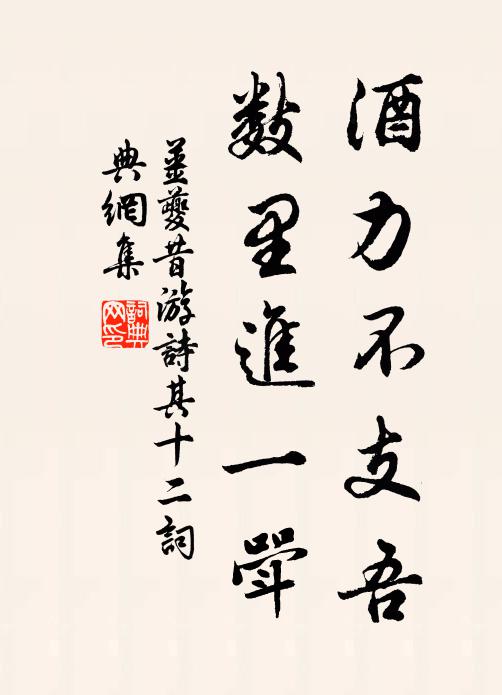 酒力不支吾
数里進一斝
薑夔昔游詩其十二詞
典網集
詞典
网印